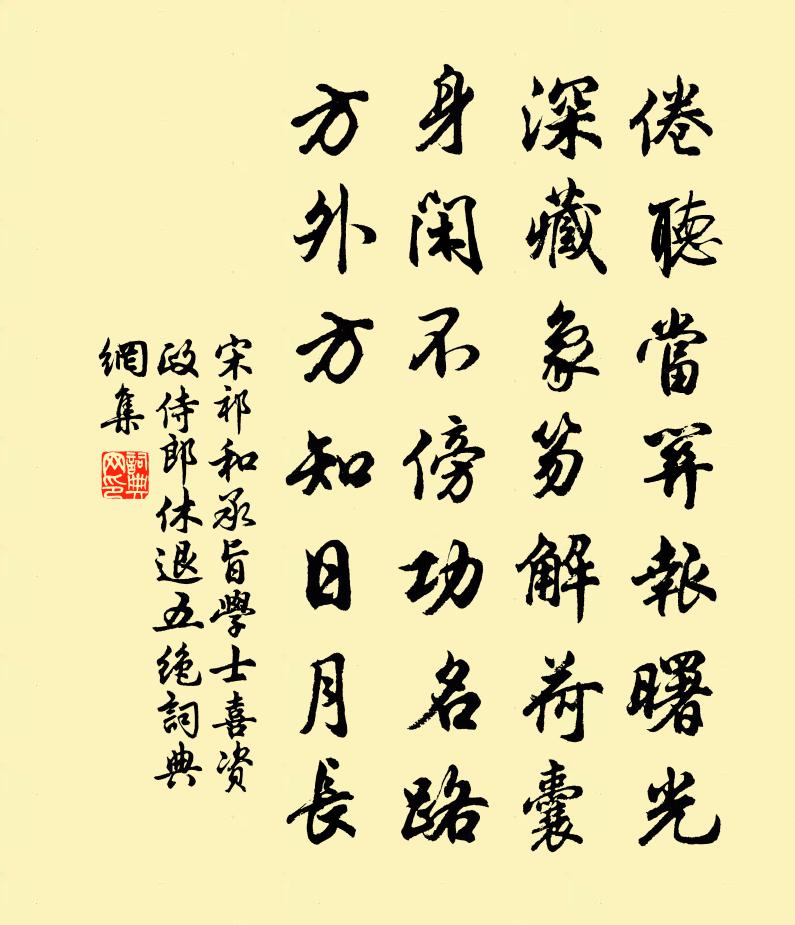 倦聽當關報曙光
深藏象笏解荷囊
身閑不傍功名路
方外方知日月長
宋祁和承旨學士喜資
政侍郎休退五絶詞典
網集
詞典
网印